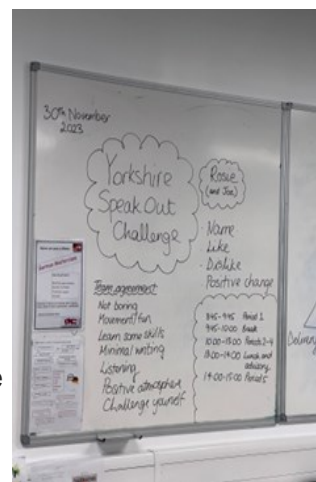 30th November
2023
Yorkshire
Speak Out
Challenge
Rosie
(and Joe)
Name
Like
Dislike
Positive change
Team agreement
Not boring
Movement/fun
Learn some skills
Minimal writing
Listening
Positive atmosphere
Challenge yourself
8:45-9:45 Period 1
9:45-10:00 Break
10:00-13:00 Periods 2-4
13:00-14:00 Lunch and
advisory
14:00-15:00 Period 5
Delivery
e